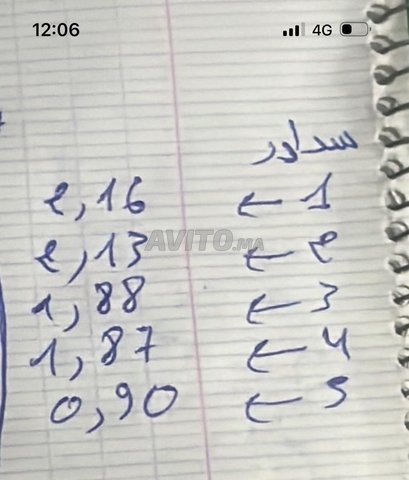 12:06 4G
سدادر
1 ← 2,16
2 ← 2,13
AVITO.MA
3 ← 1,88
4 ← 1,87
5 ← 0,90